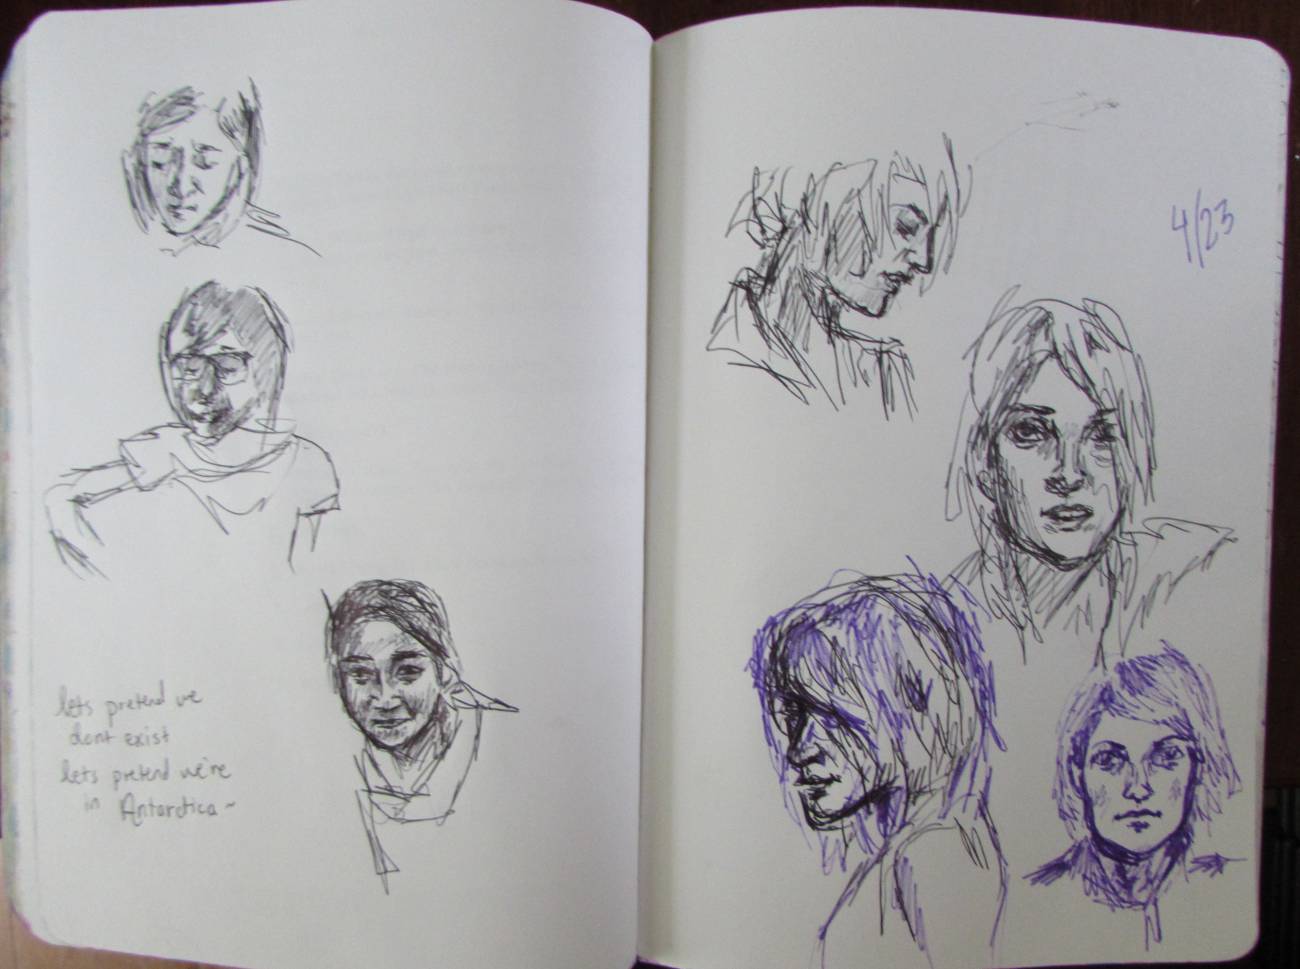 lets pretend we
dont exist
lets pretend we're
in Antarctica ~
4/23